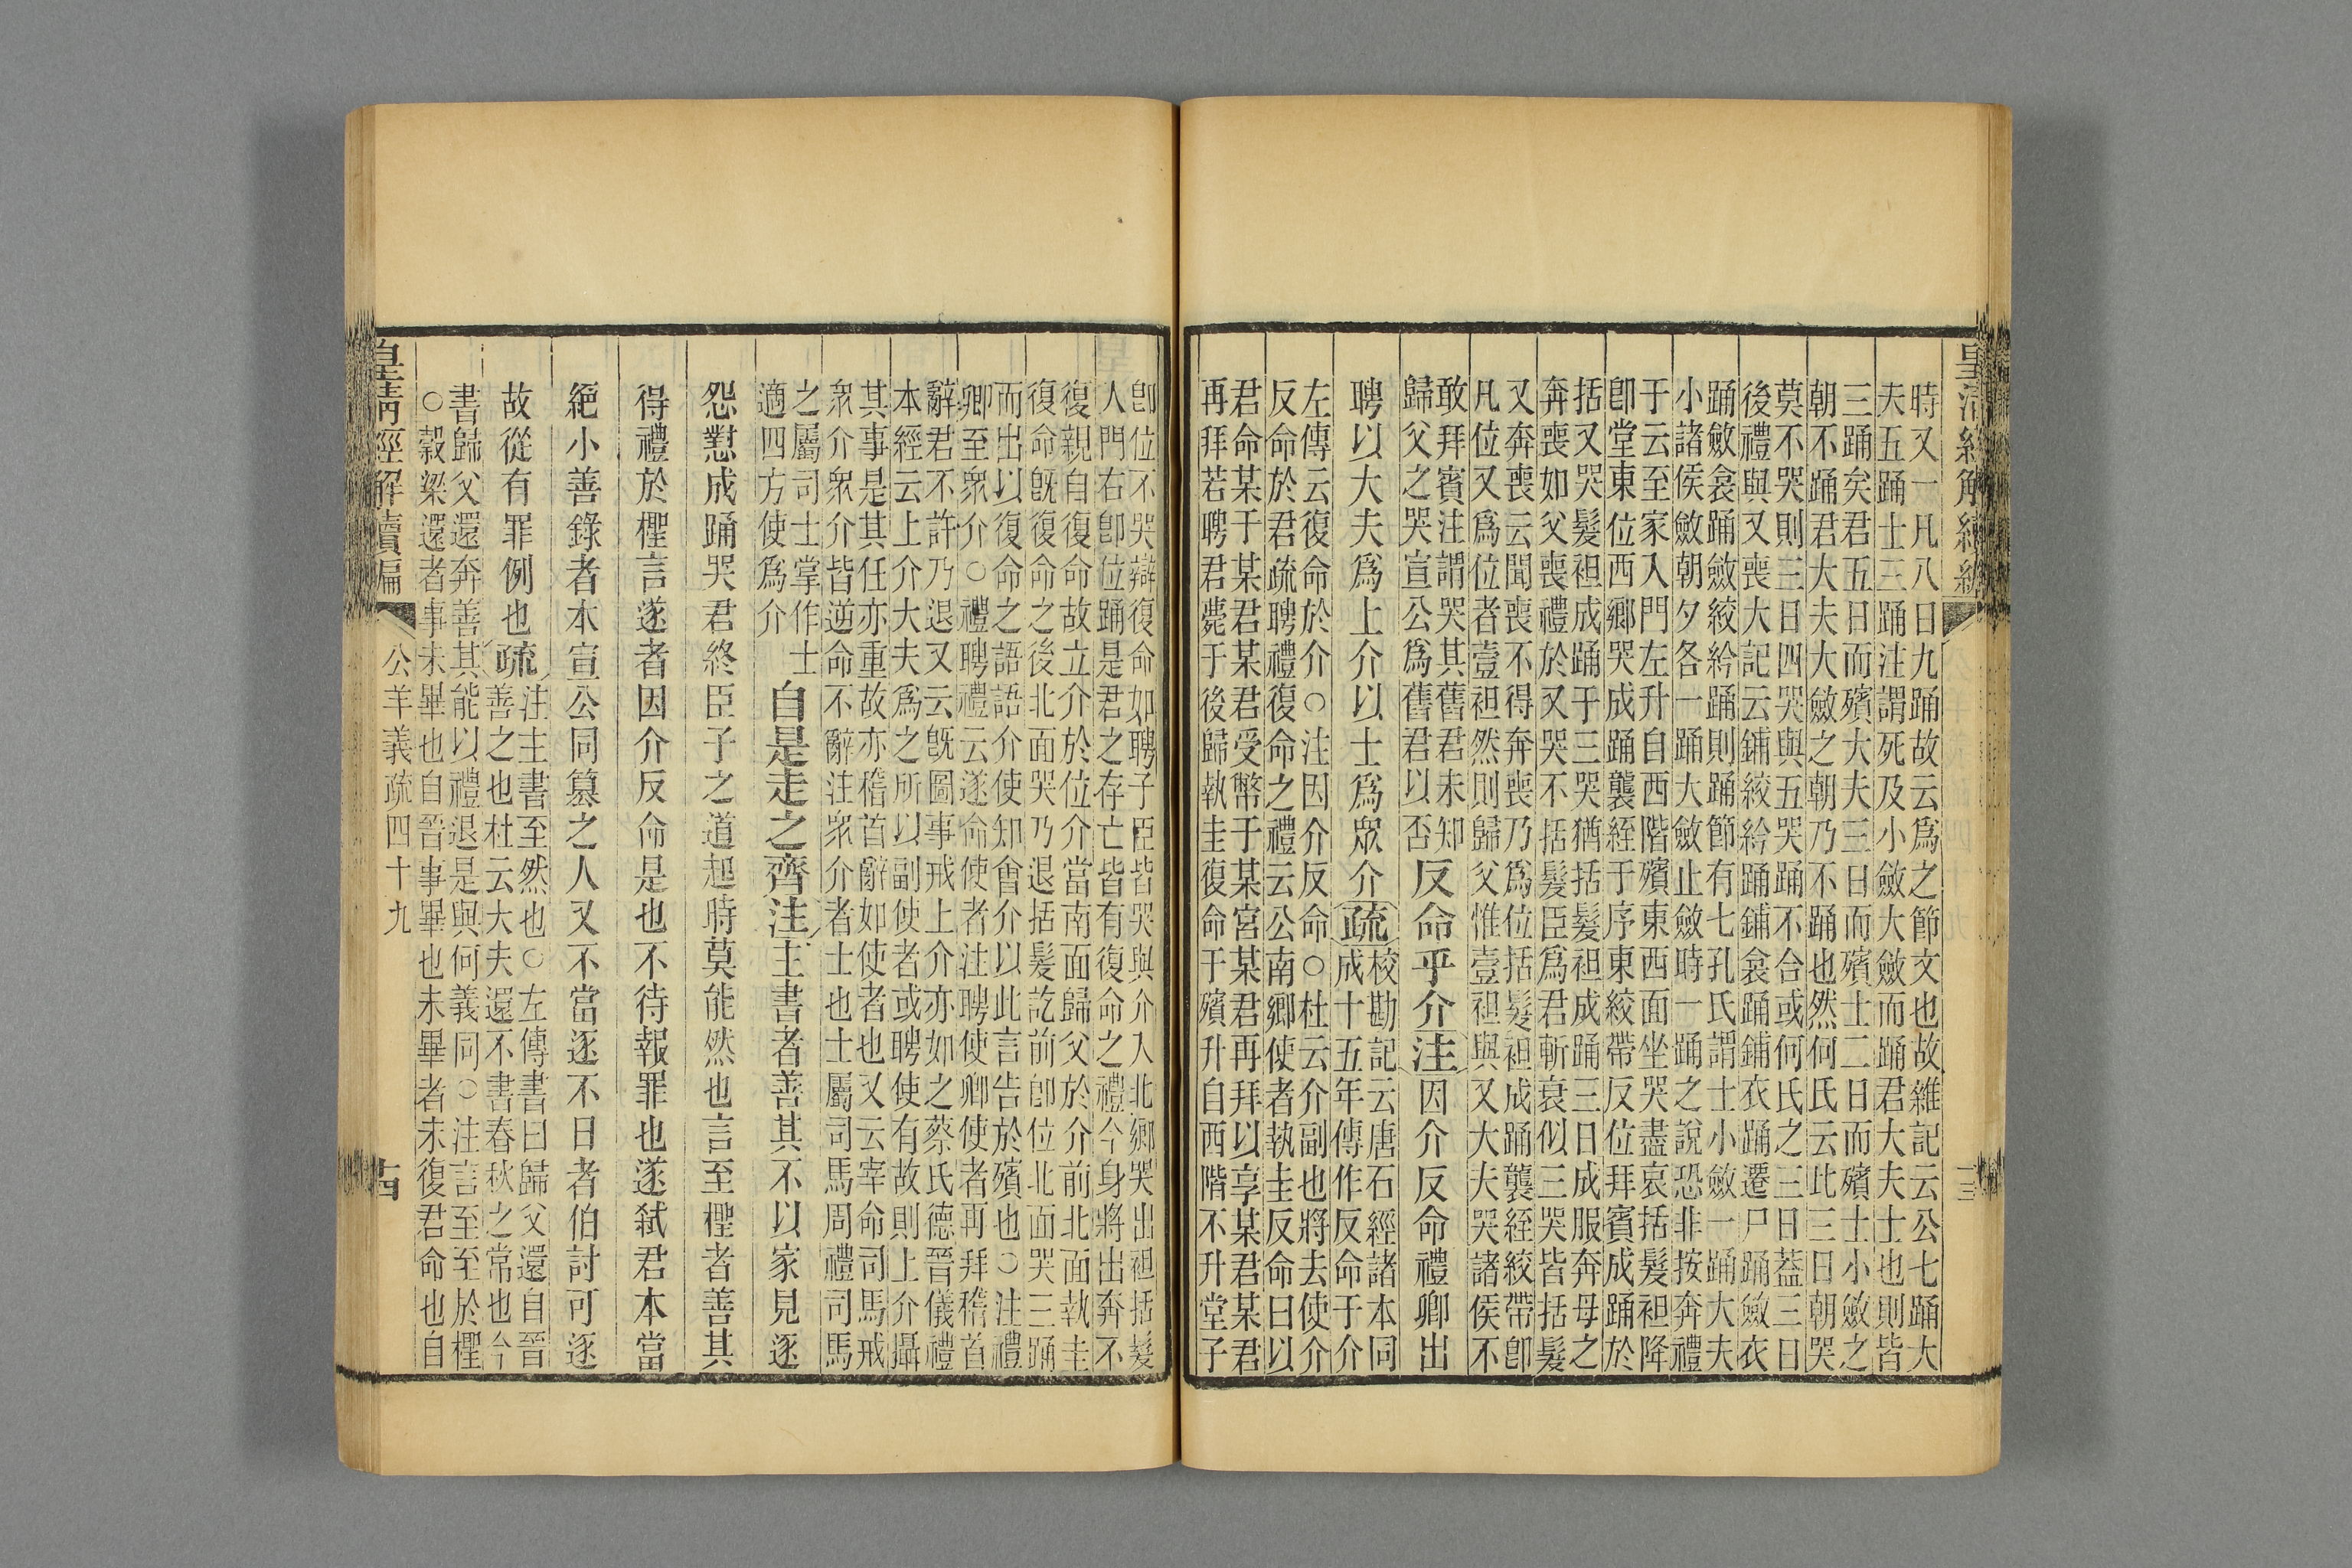 皇清經解續編
時又一凡八日九踊故云爲之節文也故雜記云公七踊大
夫五踊士三踊注謂死及小斂大斂而踊君大夫士也則皆
三踊矣君五日而殯大夫三日而殯士二日而殯士小斂之
朝不踊君大夫大斂之朝乃不踊也然何氏云此三日朝哭
莫不哭則三日四哭與五哭踊不合或何氏之三日葢三日
後禮與又喪大記云鋪絞紟踊鋪衾踊鋪衣踊遷尸踊斂衣
踊斂衾踊斂絞紟踊則踊節有七孔氏謂士小斂一踊大夫
小諸侯斂朝夕各一踊大斂止斂時一踊之說恐非按奔禮
于云至家入門左升自西階殯東西面坐哭盡哀括髮袒降
卽堂東位西鄉哭成踊襲絰于序東絞帶反位拜賓成踊於
括又哭髮袒成踊于三哭猶括髮袒成踊三日成服奔母之
奔喪如父喪禮於又哭不括髮臣爲君斬衰似三哭皆括髮
又奔喪云聞喪不得奔喪乃爲位括髮袒成踊襲絰絞帶卽
凡位又爲位者壹袒然則歸父惟壹袒與又大夫哭諸侯不
敢拜賓注謂哭其舊君未知
歸父之哭宣公爲舊君以否
反命乎介注因介反命禮卿出
聘以大夫爲上介以士爲眾介疏
校勘記云唐石經諸本同
成十五年傳作反命于介
左傳云復命於介○注因介反命○杜云介副也將去使介
反命於君疏聘禮復命之禮云公南鄉使者執圭反命曰以
君命某于某君某君受幣于某宮某君再拜以享某君某君
再拜若聘君薨于後歸執圭復命于殯升自西階不升堂子
卽位不哭辯復命如聘子臣皆哭與介入北鄉哭出袒括髮
人門右卽位踊是君之存亡皆有復命之禮今身將出奔不
復親自復命故立介於位介當南面歸父於介前北面執圭
復命旣復命之後北面哭乃退括髮訖前卽位北面哭三踊
而出以復命之語語介使知會介以此言告於殯也○注禮
卿至眾介○禮聘禮云遂命使者注聘使卿使者再拜稽首
辭君不許乃退又云旣圖事戒上介亦如之蔡氏德晉儀禮
本經云上介大夫爲之所以副使者或聘使有故則上介攝
其事是其任亦重故亦稽首辭如使者也又云宰命司馬戒
眾介眾介皆逆命不辭注眾介者士也士屬司馬周禮司馬
之屬司士掌作士
適四方使爲介
自是走之齊注主書者善其不以家見逐
怨懟成踊哭君終臣子之道起時莫能然也言至檉者善其
得禮於檉言遂者因介反命是也不待報罪也遂弒君本當
絕小善錄者本宣公同簒之人又不當逐不日者伯討可逐
故從有罪例也疏
注主書至然也○左傳書曰歸父還自晉
善之也杜云大夫還不書春秋之常也今
書歸父還奔善其能以禮退是與何義同○注言至至於檉
○穀梁還者事未畢也自晉事畢也未畢者未復君命也自
皇清經解續編
公羊義疏四十九